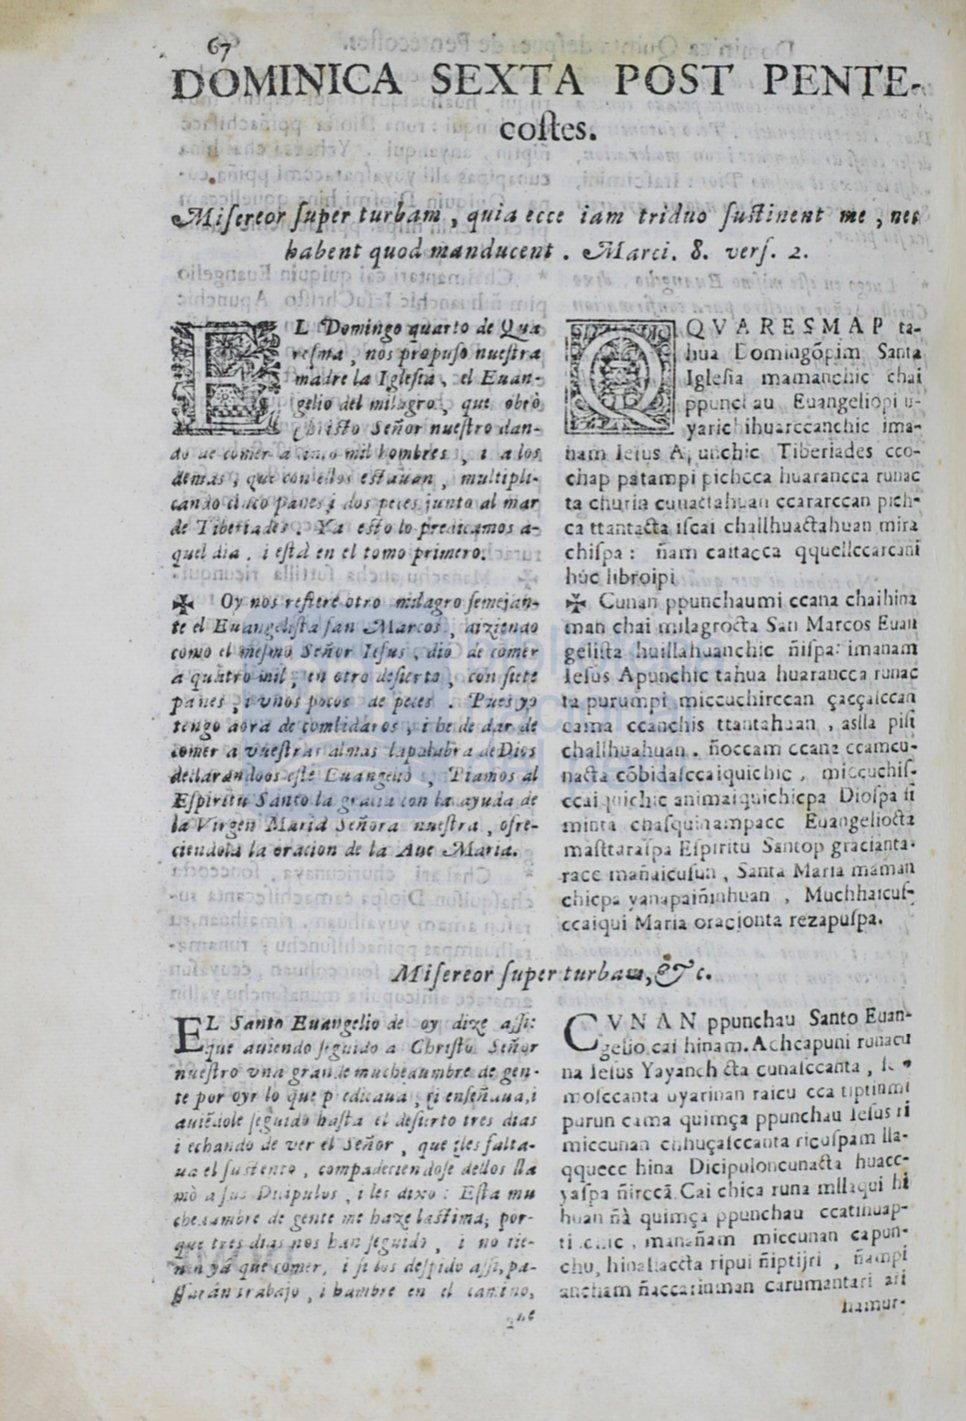 67
DOMINICA SEXTA POST PENTE-
coſtes.
Miſereor ſuper turbam, quia ecce iam triduo ſuſtinent me, nec
habent quod manducent. Marci. 8. verſ. 2.
EL Domingo quarto de Qua
reſma, nos propuſo nueſtra
madre la Igleſia, el Euan-
gelio del milagro, que obrò
Chriſto Señor nueſtro dan-
do de comer a cinco mil hombres, i a los
demas, que con ellos eſtauan, multipli-
cando cinco panes i dos peces junto al mar
de Tiberiades. Ya eſto lo predicamos a-
quel dia, i eſtà en el tomo primero.
✠ Oy nos refiere otro milagro ſemejan-
te el Euangeliſta ſan Marcos, diziendo
como el meſmo Señor Ieſus, diò de comer
a quatro mil, en otro deſierto, con ſiete
panes, i vnos pocos de peces. Pues yo
tengo aora de combidaros, i he de dar de
comer a vueſtras almas la palabra de Dios
declarandoos eſte Euangelio, Pidamos al
Eſpiritu Santo la gracia con la ayuda de
la Virgen Maria Señora nueſtra, ofre-
ciendola la oracion de la Aue Maria.
QVARESMAP ta-
hua Domingõpim Santa
Igleſia mamanchic chai
ppunchau Euangeliopi u-
yarichihuarccanchic ima-
nam Ieſus Apunchic Tiberiades cco-
chap patampi pichcca huarancca runac
ta churia cunactahuan ccararccan pich-
ca ttantacta iſcai challhuactahuan mira
chiſpa: ñam caitacca qquellccarcani
huc libroipi
✠ Cunan ppunchaumi ccana chaihina
man chai milagrocta San Marcos Euan
geliſta huillahuanchic ñiſpa: imanam
Ieſus Apunchic tahua huarancca runac
ta purumpi miccuchirccan çacçaſccan
cama ccanchis ttantahuan, aslla piſi
challhuahuan. ñoccam ccana ccamcu-
nacta cõbidaſccaiquichic, miccuchiſ-
ccaiquichic animaiquichicpa Dioſpa ſi
minta chaſquinampacc Euangeliocta
maſttaraſpa Eſpiritu Santop gracianta-
racc mañaicuſun, Santa Maria maman
chicpa yanapaiñinhuan, Muchhaicuſ-
ccaiqui Maria oracionta rezapuſpa.
Miſereor ſuper turbam, &c.
EL Santo Euangelio de oy dize aſſi:
que auiendo ſeguido a Chriſto Señor
nueſtro vna grande muchedumbre de gen-
te por oyr lo que predicaua, i enſeñaua, i
auiẽdole ſeguido haſta el deſierto tres dias
i echando de ver el Señor, que les falta-
ua el ſuſtento, compadeciendoſe dellos lla
mò a ſus Diſcipulos, i les dixo: Eſta mu
chedumbre de gente me haze laſtima, por-
que tres dias nos han ſeguido, i no tie-
nen yà que comer, i ſi los deſpido aſſi, pa-
ſſaràn trabajo, i hambre en el camino,
que
CVNAN ppunchau Santo Euan-
gelio cai hinam. Achcapuni runacu
na Ieſus Yayanchicta cunaſccanta,
moſccanta uyarinan raicu cca tiptinmi
purun cama quimça ppunchau Ieſus ſi
miccunan cuhuçaſccanta ricuſpam lla-
qquecc hina Dicipuloncunacta huacc-
yaſpa ñirccã. Cai chica runa mllaqui hi
huan ñà quimça ppunchau ccatihuap-
tinchic, manañam miccunan capun-
chu, hinallaccta ripui ñiptijri, ñampi
ancham ñaccarinman carumantari
hamur-